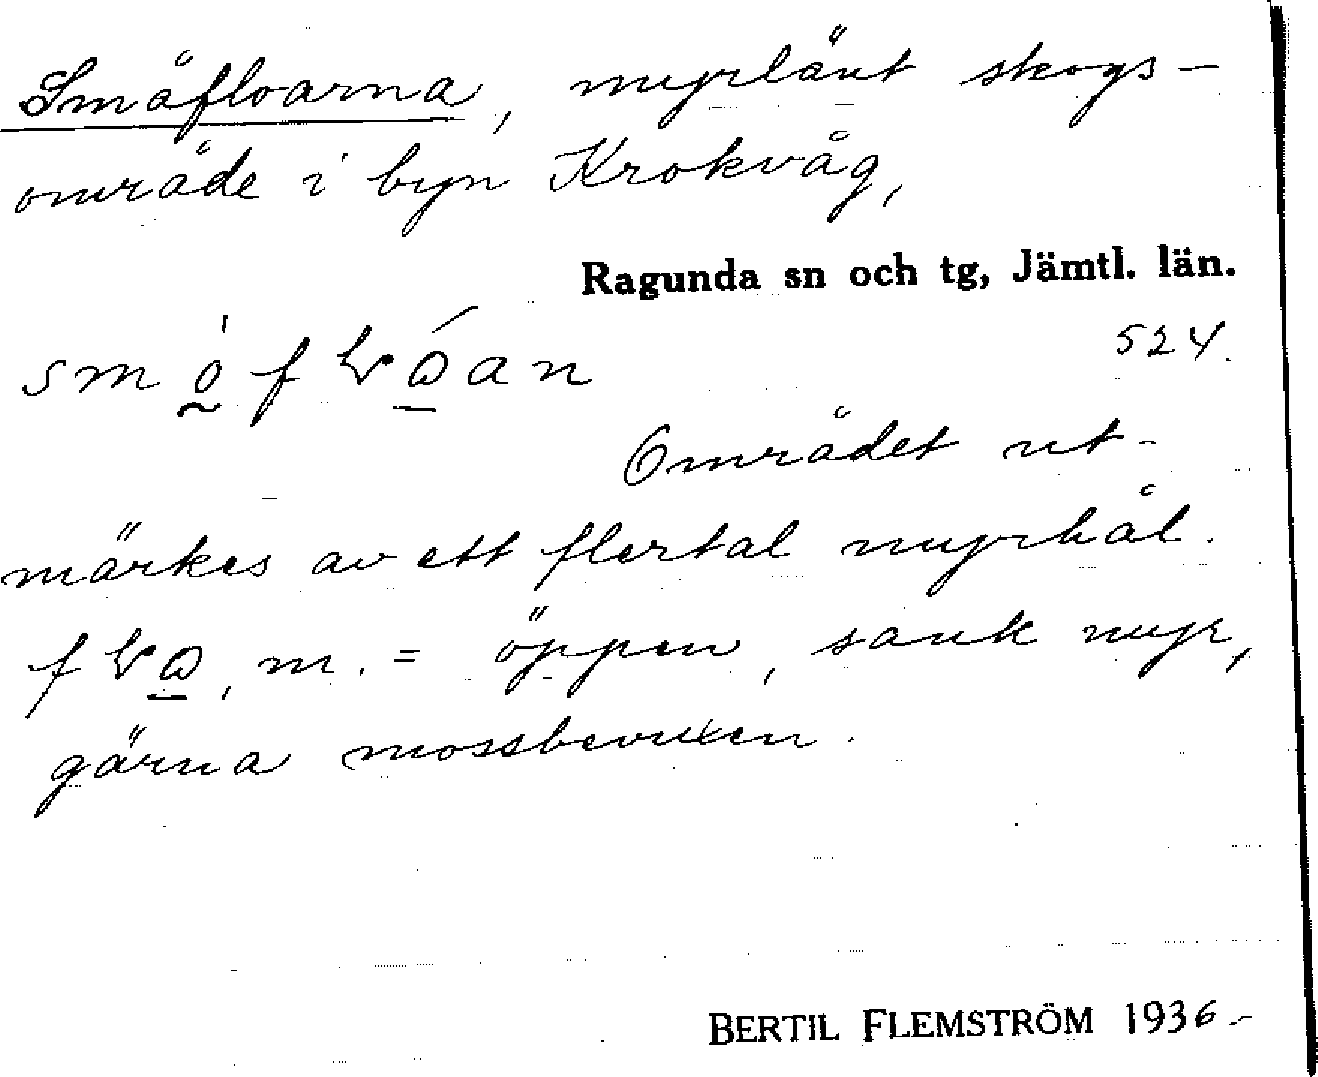 Småfloarna, myrlänt skogs-
område i byn Krokvåg,
Ragunda sn och tg, Jämtl. län.
524.
Området ut-
märkes av ett flertal myrhål.
m. = öppen, sank myr,
gärna mossbevuxen.
BERTIL FLEMSTRÖM 1936.-